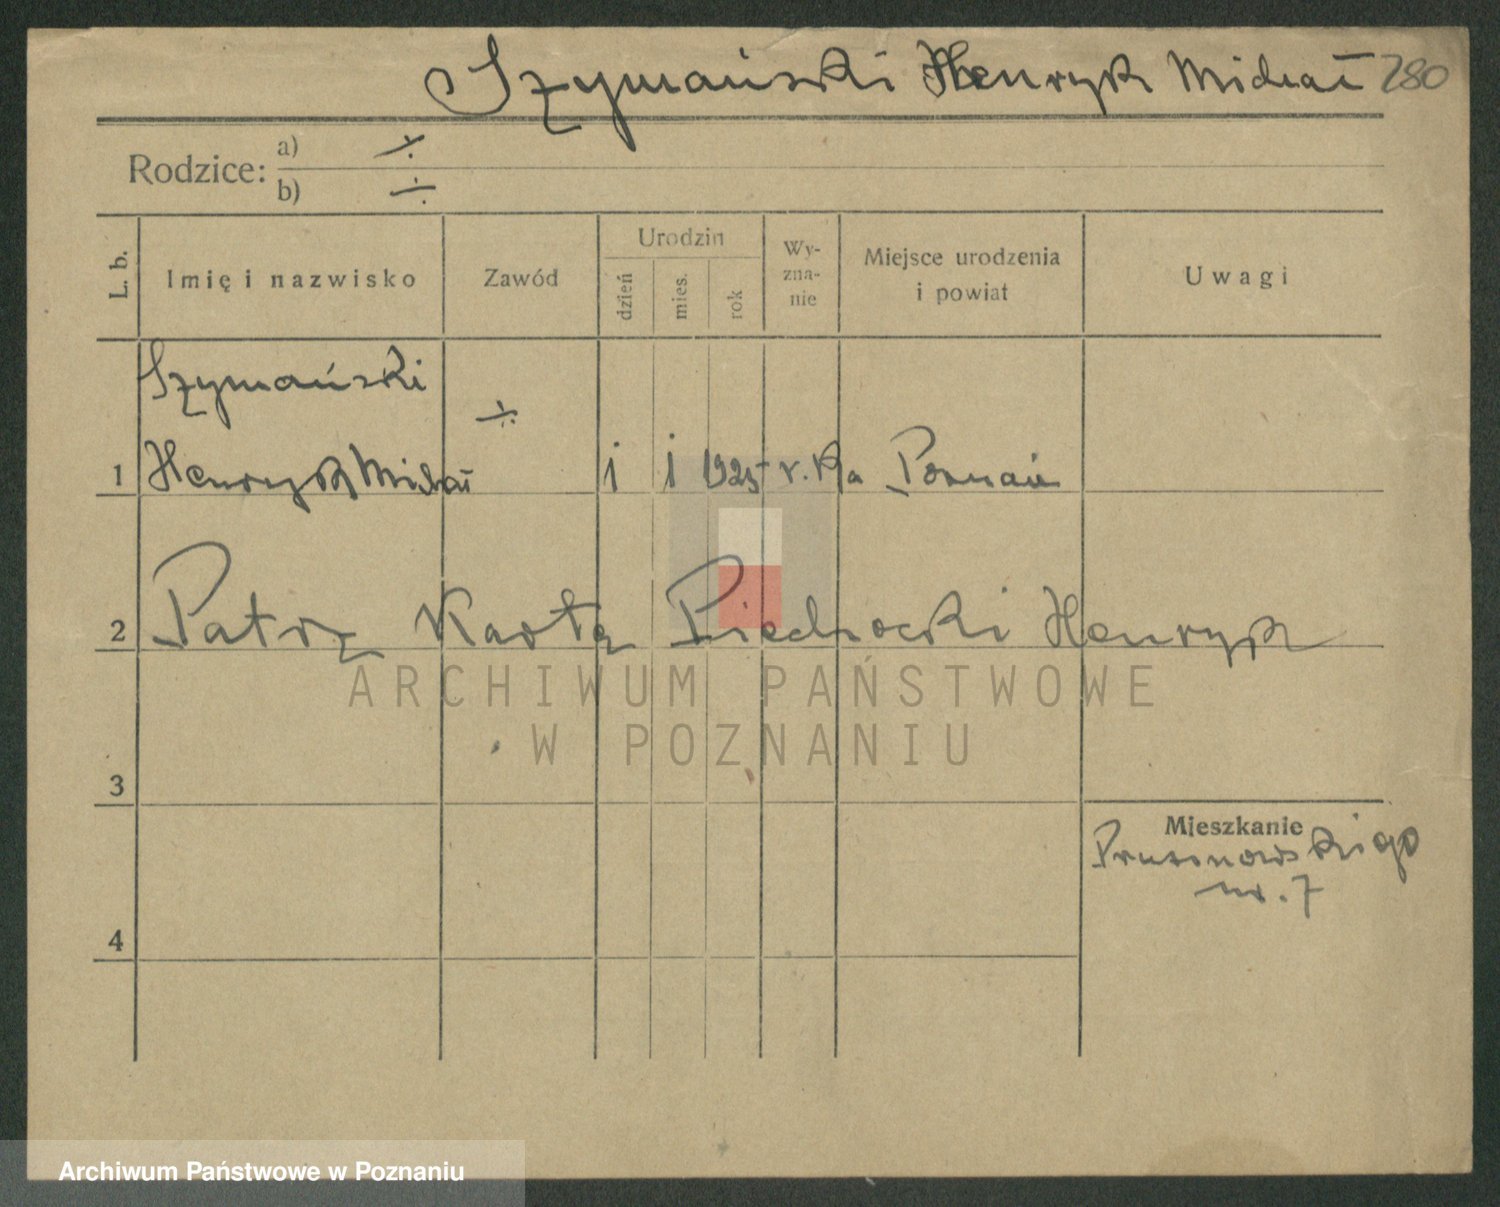 Szymański Henryk Michał 280
Rodzice: a) ÷
b) ÷
L. b.
Imię i nazwisko
Zawód
Urodzin
dzień
mies.
rok
Wy-
zna-
nie
Miejsce urodzenia
i powiat
Uwagi
Szymański
÷
1 Henryk Michał 1 1 1925 r. Ka Poznań
2 Patrz Kartę Piechocki Henryk
ARCHIWUM PAŃSTWOWE
W POZNANIU
3
Mieszkanie
nr. 7
4
Archiwum Państwowe w Poznaniu